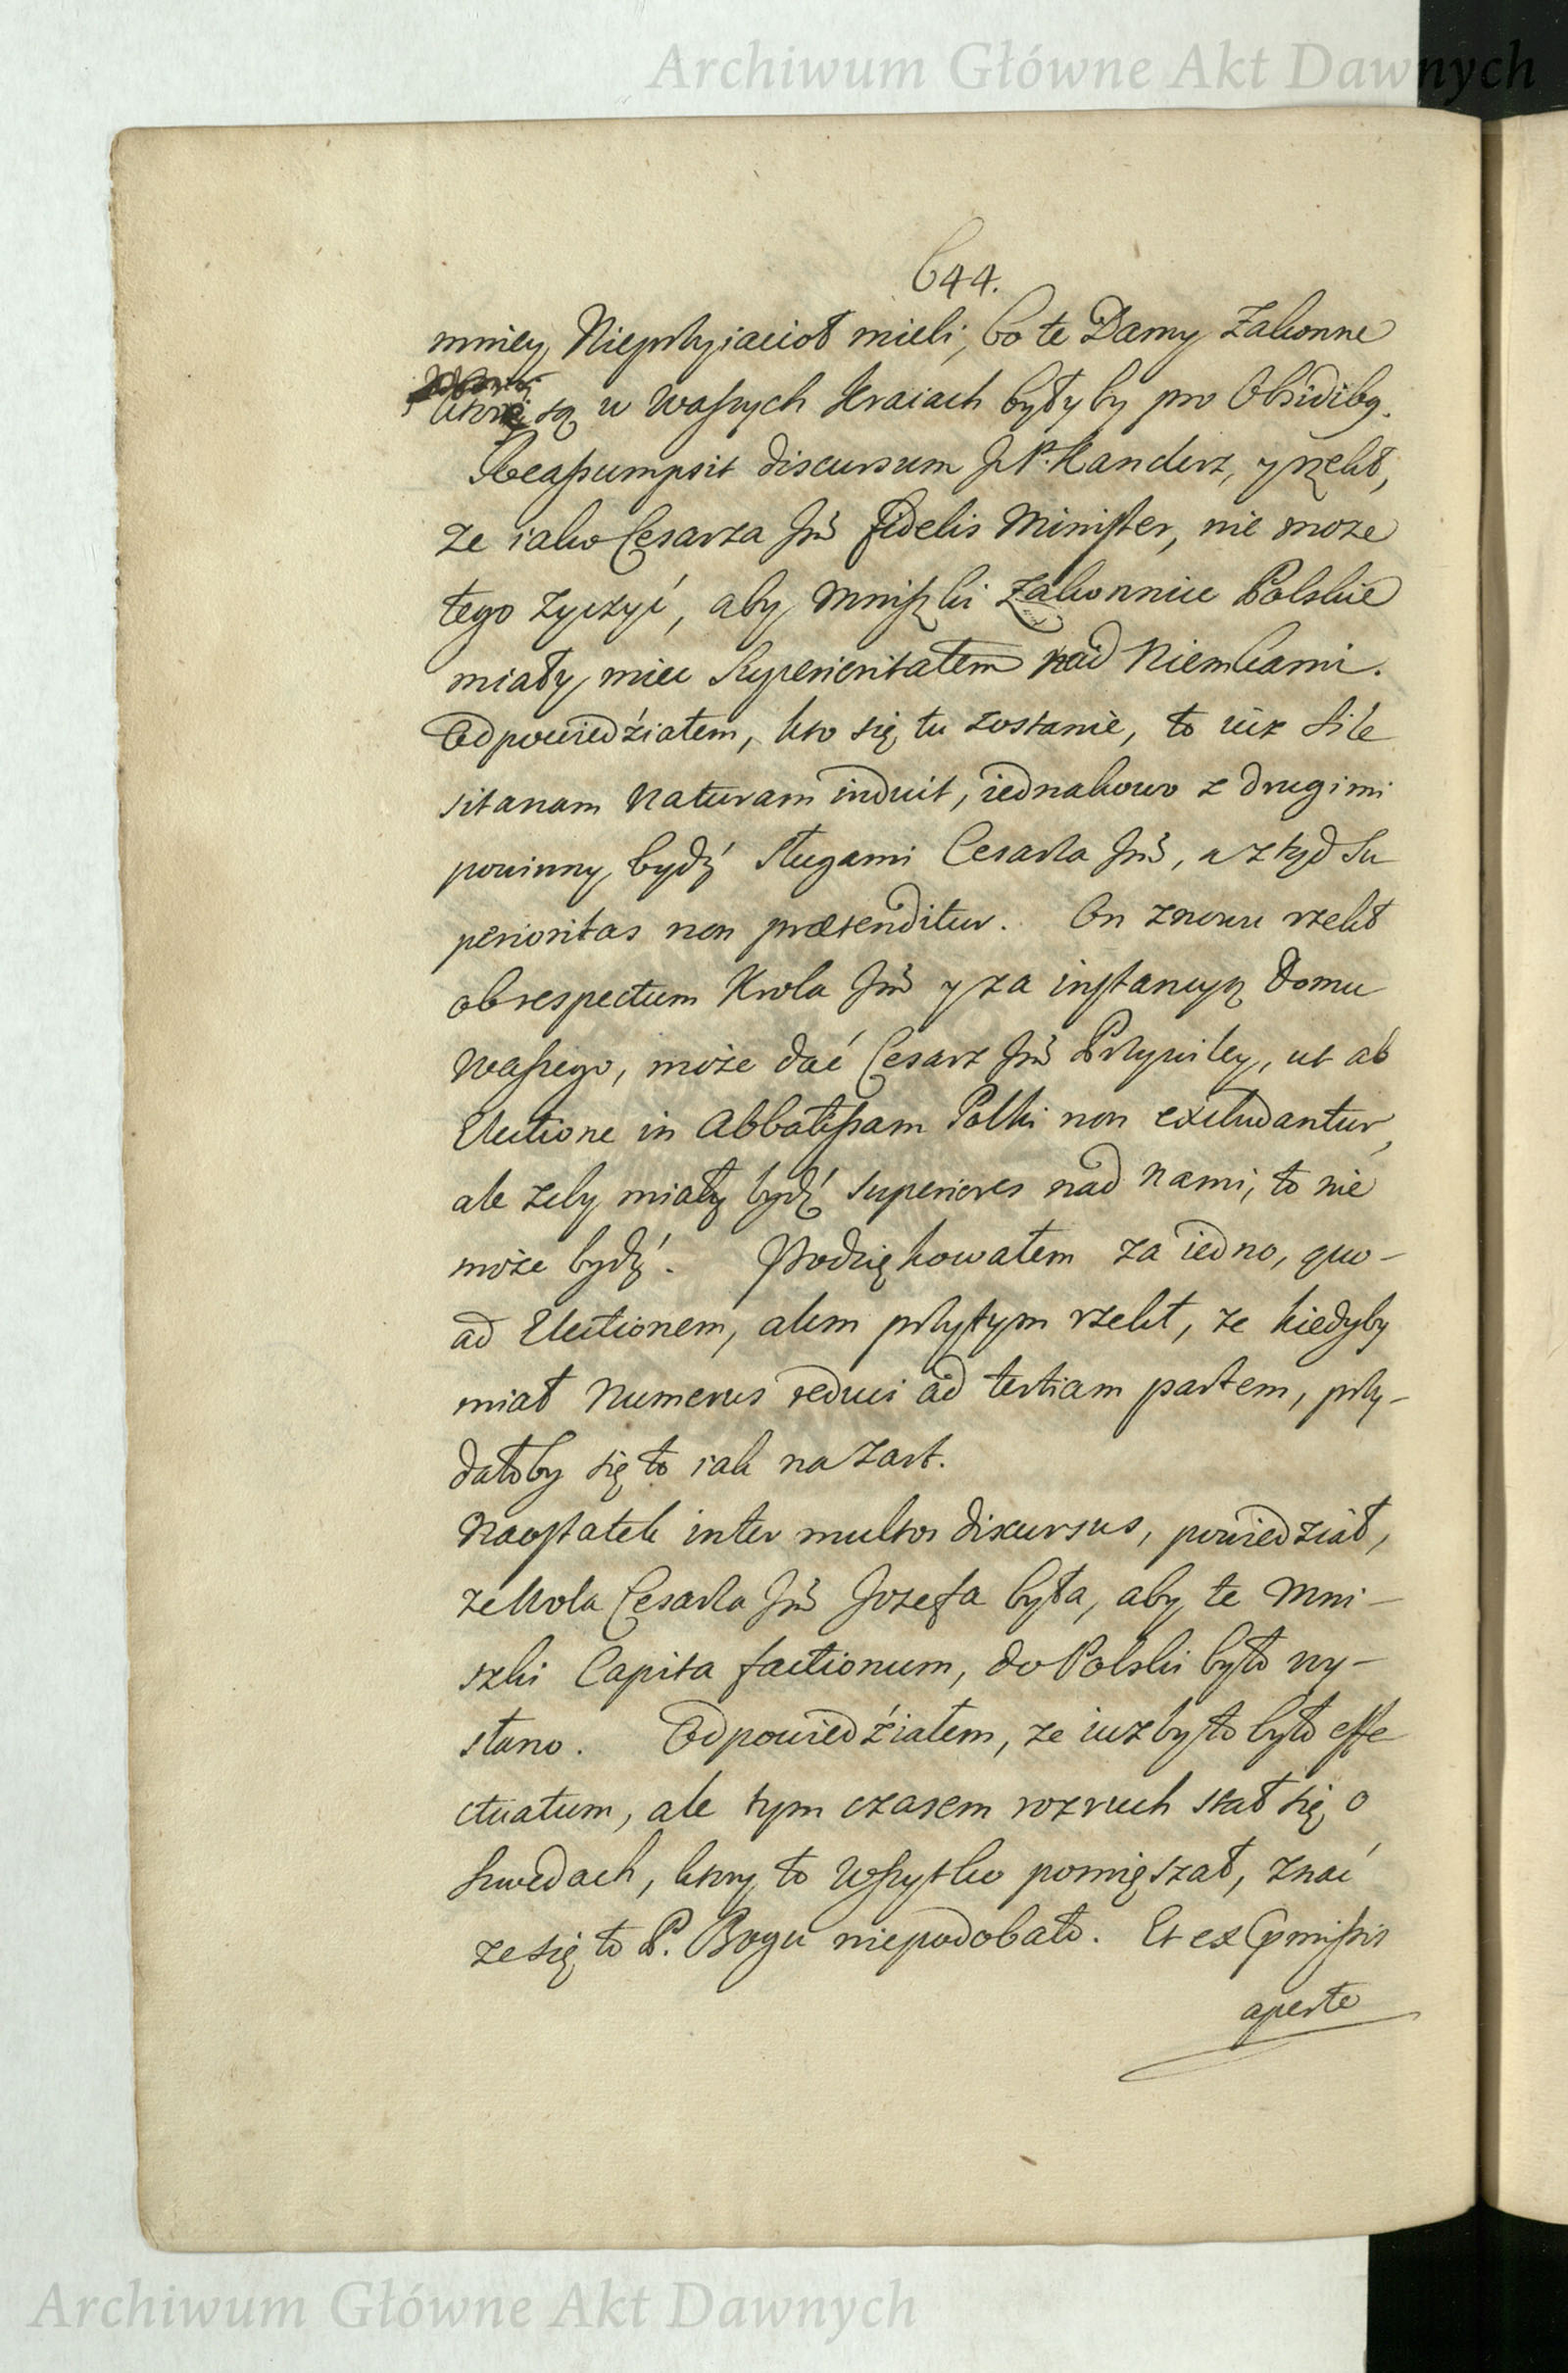 Archiwum Główne Akt Dawnych
644.
mniey Nieprzyiacioł mieli, bo te Damy Zakonne
ktore są w Waszych Kraiach byłyby pro Obsidibq.
Reassumpsit discursum J P. Kanclerz, y rzekł,
ze iako Cesarza Jmć fidelis Minister, nie moze
tego zyczyć, aby Mniszki Zakonnice Polskie
miały miec Superioritatem nad Niemkami.
Odpowiedźiałem, kto się tu zostanie, to iuż Sile
sitanam Naturam induit, iednakowo z drugimi
powinny bydź Sługami Cesarza Jmć, a ztąd Su
perioritas non prætenditur. On znowu rzekł
ob respectum Krola Jmć y za instancyą Domu
Waszego, może dać Cesarz Jmć Przywiley, ut ab
Electione in Abbatissam Polki non excludantur,
ale zeby miały bydź Superiores nad Nami, to nie
może bydź. Podziękowałem za iedno, quo-
ad Electionem, alem przytym rzekł, ze kiedyby
miał Numerus reduci ad tertiam partem, przy-
dałoby się to iak na Zart.
Naostatek inter multos discursus, powiedział,
ze Wola Cesarza Jmć Jozefa była, aby te Mni-
szki Capita factionum, do Polski było wy-
słano. Odpowiedźiałem, ze iuzby to było effe
ctuatum, ale tym czasem rozruch stał się o
Szwedach, ktory to Wszytko pomięszał, znać
ze się to P. Bogu niepodobało. Et ex Præmissis
aperte
Archiwum Główne Akt Dawnych